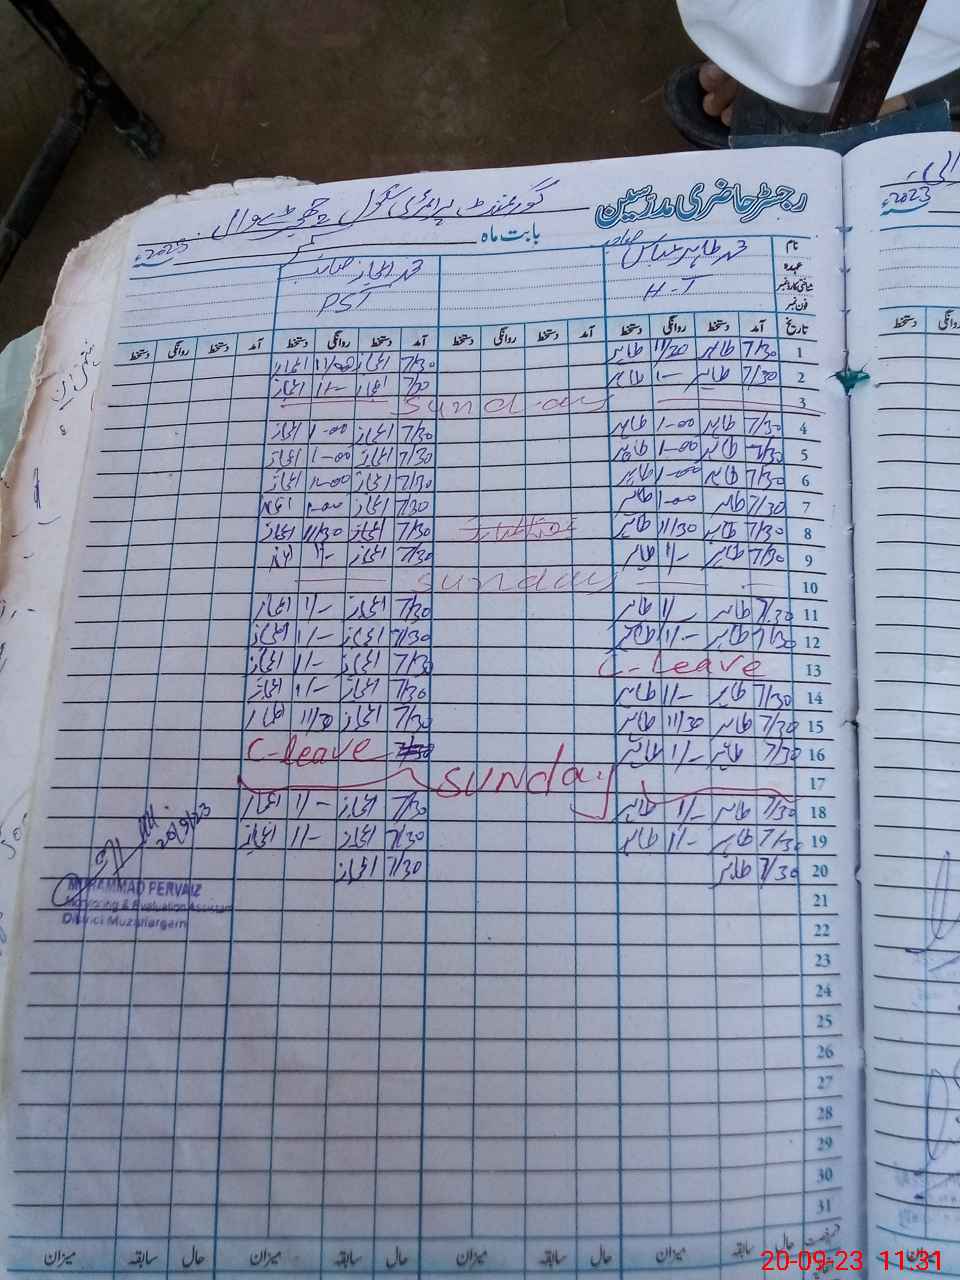 رجسٹر حاضری مدرسین گورنمنٹ پرائمری سکول
بابت ماہ 2023ء
نام محمد طاہر عباس صاحب محمد اعجاز صاحب
عہدہ H-T PST
شناختی کارڈ نمبر
فون نمبر
تاریخ آمد دستخط روانگی دستخط آمد دستخط روانگی دستخط آمد دستخط روانگی دستخط آمد دستخط روانگی دستخط
1 7/30 طاہر 11/30 طاہر 7/30 اعجاز اعجاز
2 7/30 طاہر 1/- طاہر 7/30 اعجاز 1/- اعجاز
3 Sunday
4 7/30 طاہر 1-00 طاہر 7/30 اعجاز 1-00 اعجاز
5 7/30 طاہر 1-00 طاہر 7/30 اعجاز 1-00 اعجاز
6 7/30 طاہر 1-00 طاہر 7/30 اعجاز 1-00 اعجاز
7 7/30 طاہر 1-00 طاہر 7/30 اعجاز 1-00 اعجاز
8 7/30 طاہر 11/30 طاہر 7/30 اعجاز 11/30 اعجاز
9 7/30 طاہر 1/- طاہر 7/30 اعجاز 1/- اعجاز
10 Sunday
11 7/30 طاہر 1/- طاہر 7/30 اعجاز 1/- اعجاز
12 7/30 طاہر 1/- طاہر 7/30 اعجاز 1/- اعجاز
13 C-leave 7/30 اعجاز 1/- اعجاز
14 7/30 طاہر 1/- طاہر 7/30 اعجاز 1/- اعجاز
15 7/30 طاہر 11/30 طاہر 7/30 اعجاز 11/30 اعجاز
16 7/30 طاہر 1/- طاہر C-leave
17 Sunday
18 7/30 طاہر 1/- طاہر 7/30 اعجاز 1/- اعجاز
19 7/30 طاہر 1/- طاہر 7/30 اعجاز 1/- اعجاز
20 7/30 طاہر 7/30 اعجاز
21
22
23
24
25
26
27
28
29
30
31
20/9/23
MUHAMMAD PERVAIZ
Monitoring & Evaluation Assistant
District Muzaffargarh
حال سابقہ میزان حال سابقہ میزان حال سابقہ میزان حال سابقہ میزان
2023ء
دستخط
20-09-23 11:31